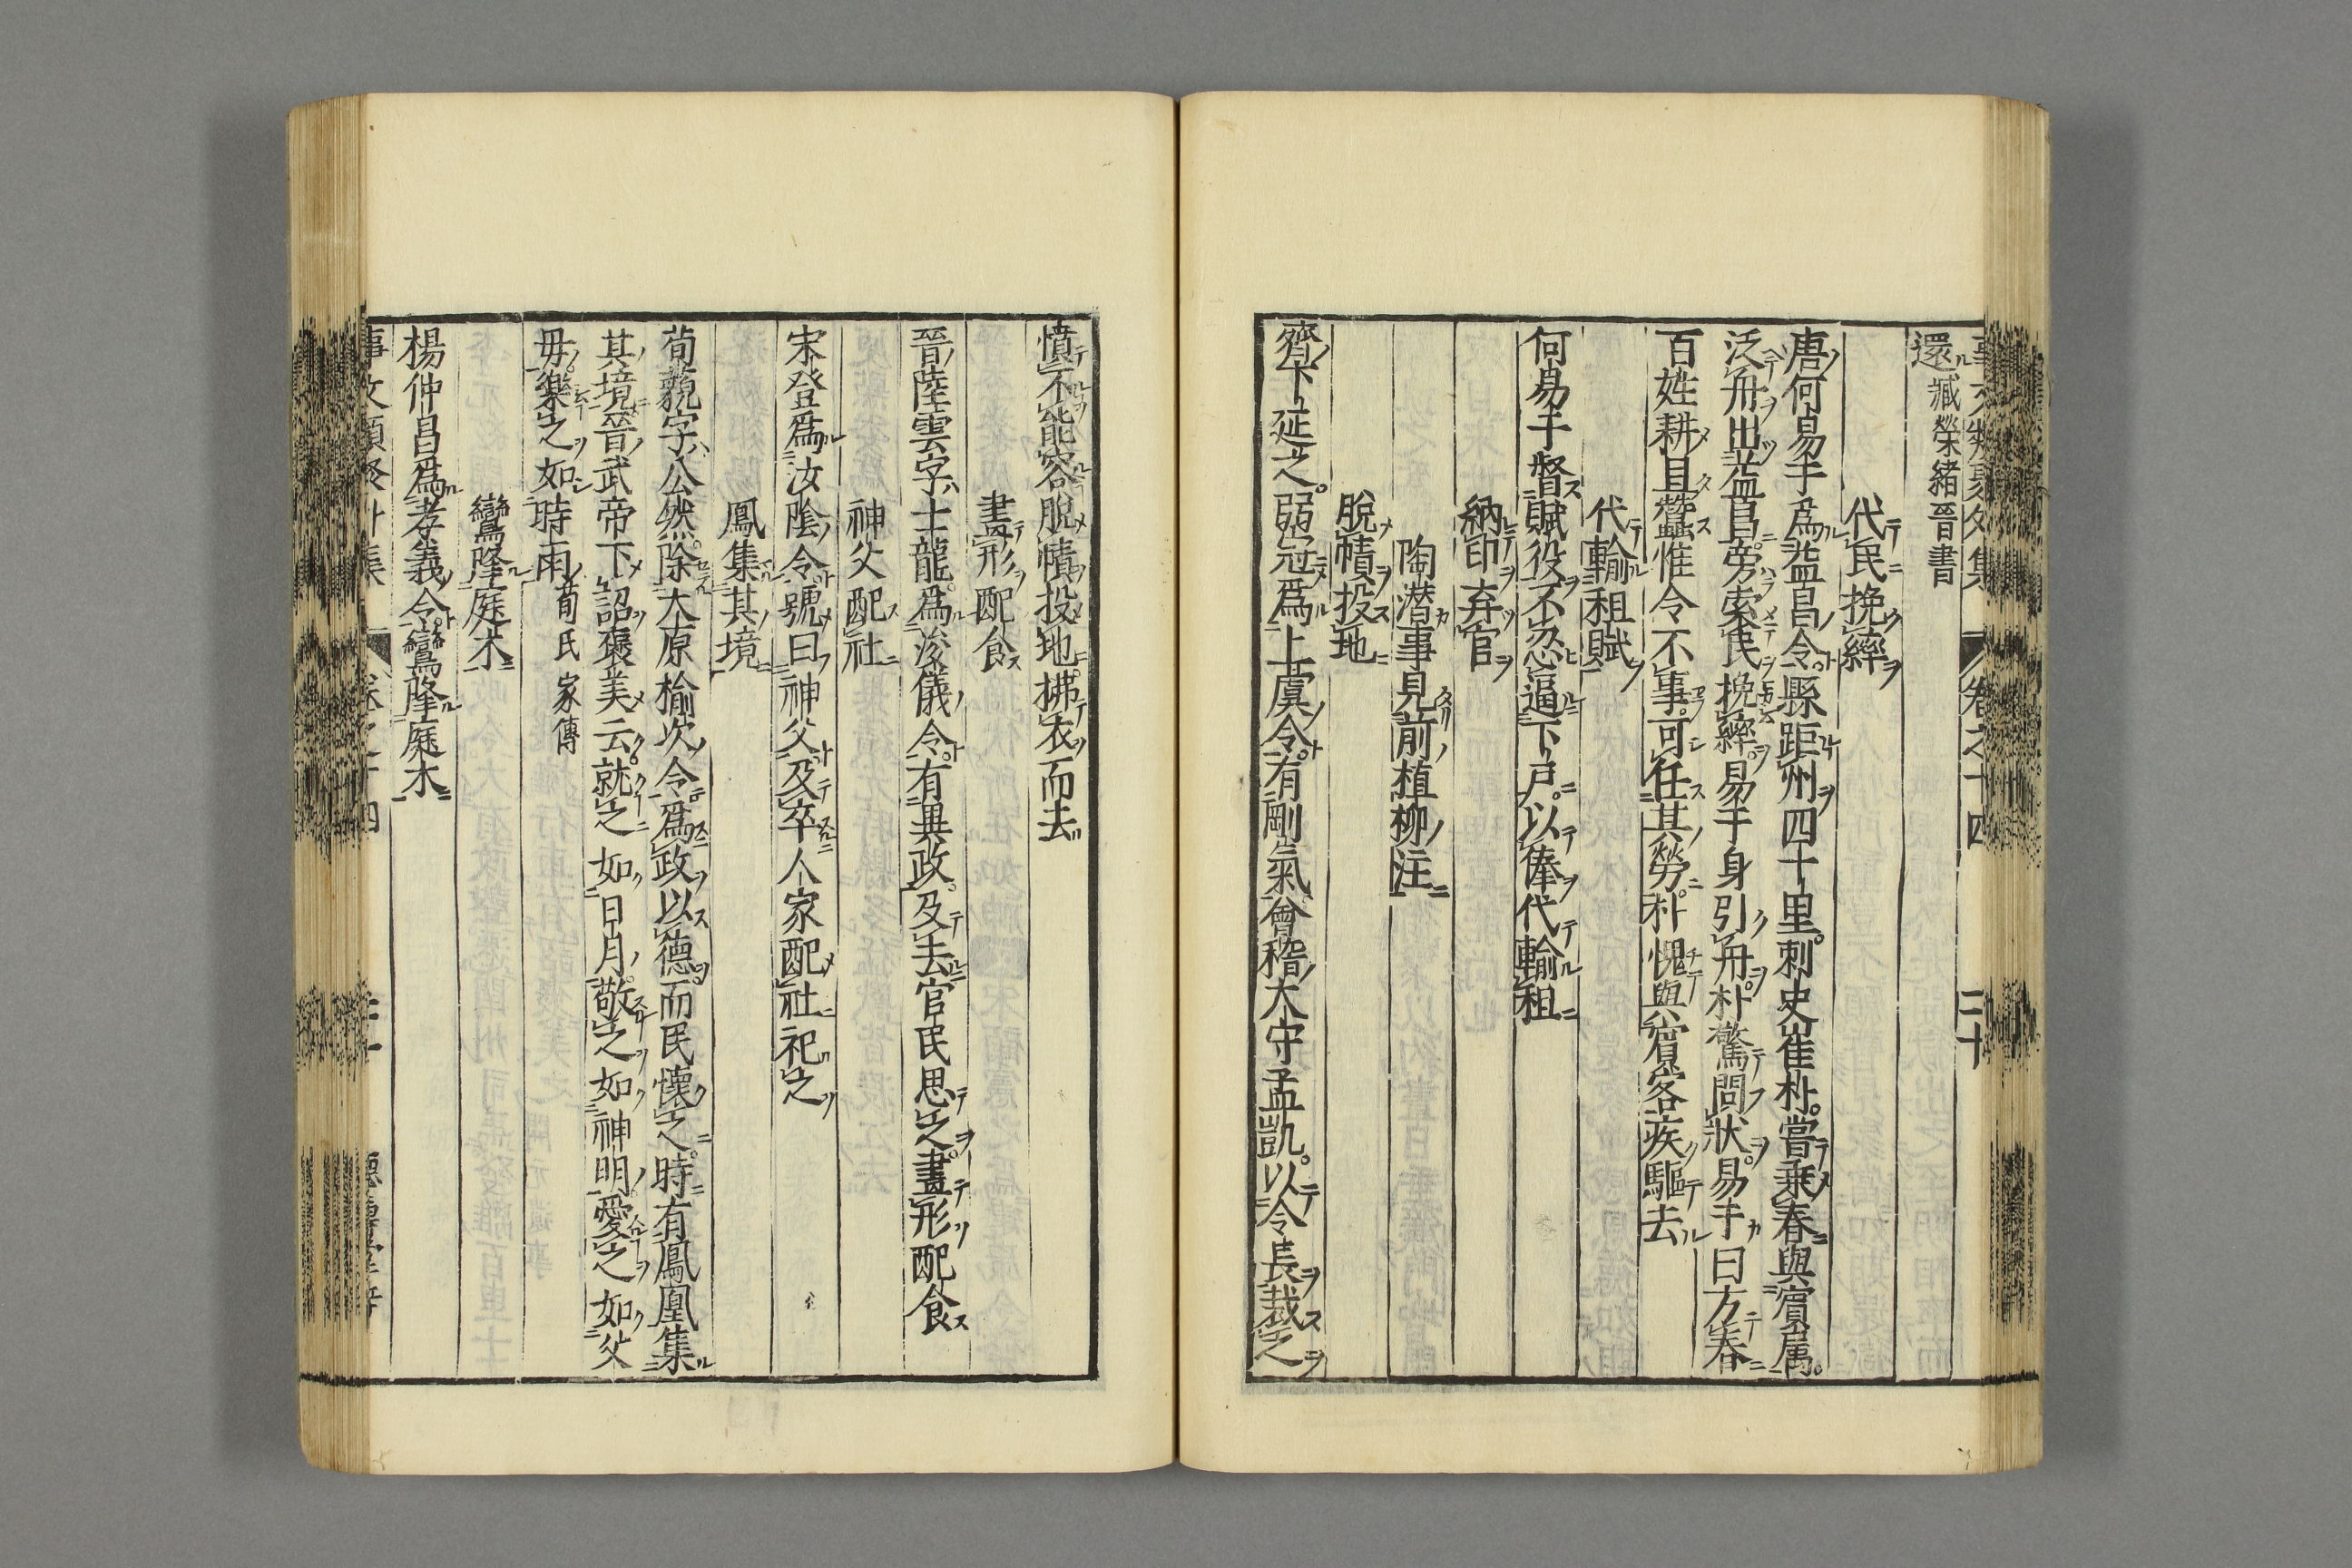 還 臧榮緒晉書
代民挽繂
唐何易于為益昌令縣距州四十里刺史崔朴嘗乗春與賓属
泛舟出益昌旁索民挽繂易于身引舟朴驚問狀易于曰方春
百姓耕且蠶惟令不事可任其勞朴愧與賓客疾驅去
代輸租賦
何易于督賦役不忍逼下戸以俸代輸租
納印弃官
陶潜事見前植柳注
脫幘投地
齊卞延之弱冠為上虞令有剛氣會稽大守孟凱以令長裁之
憤不能容脫幘投地拂衣而去
畫形配食
晉陸雲字士龍為浚儀令有異政及去官民思之畫形配食
神父配社
宋登為汝陰令號曰神父及卒人家配社祀之
鳳集其境
荀藐字公然除大原榆次令為政以德而民懐之時有鳳凰集
其境晉武帝下詔褒美云就之如日月敬之如神明愛之如父
毋樂之如時雨 荀氏家傳
鸞降庭木
楊仲昌為孝義令鸞降庭木